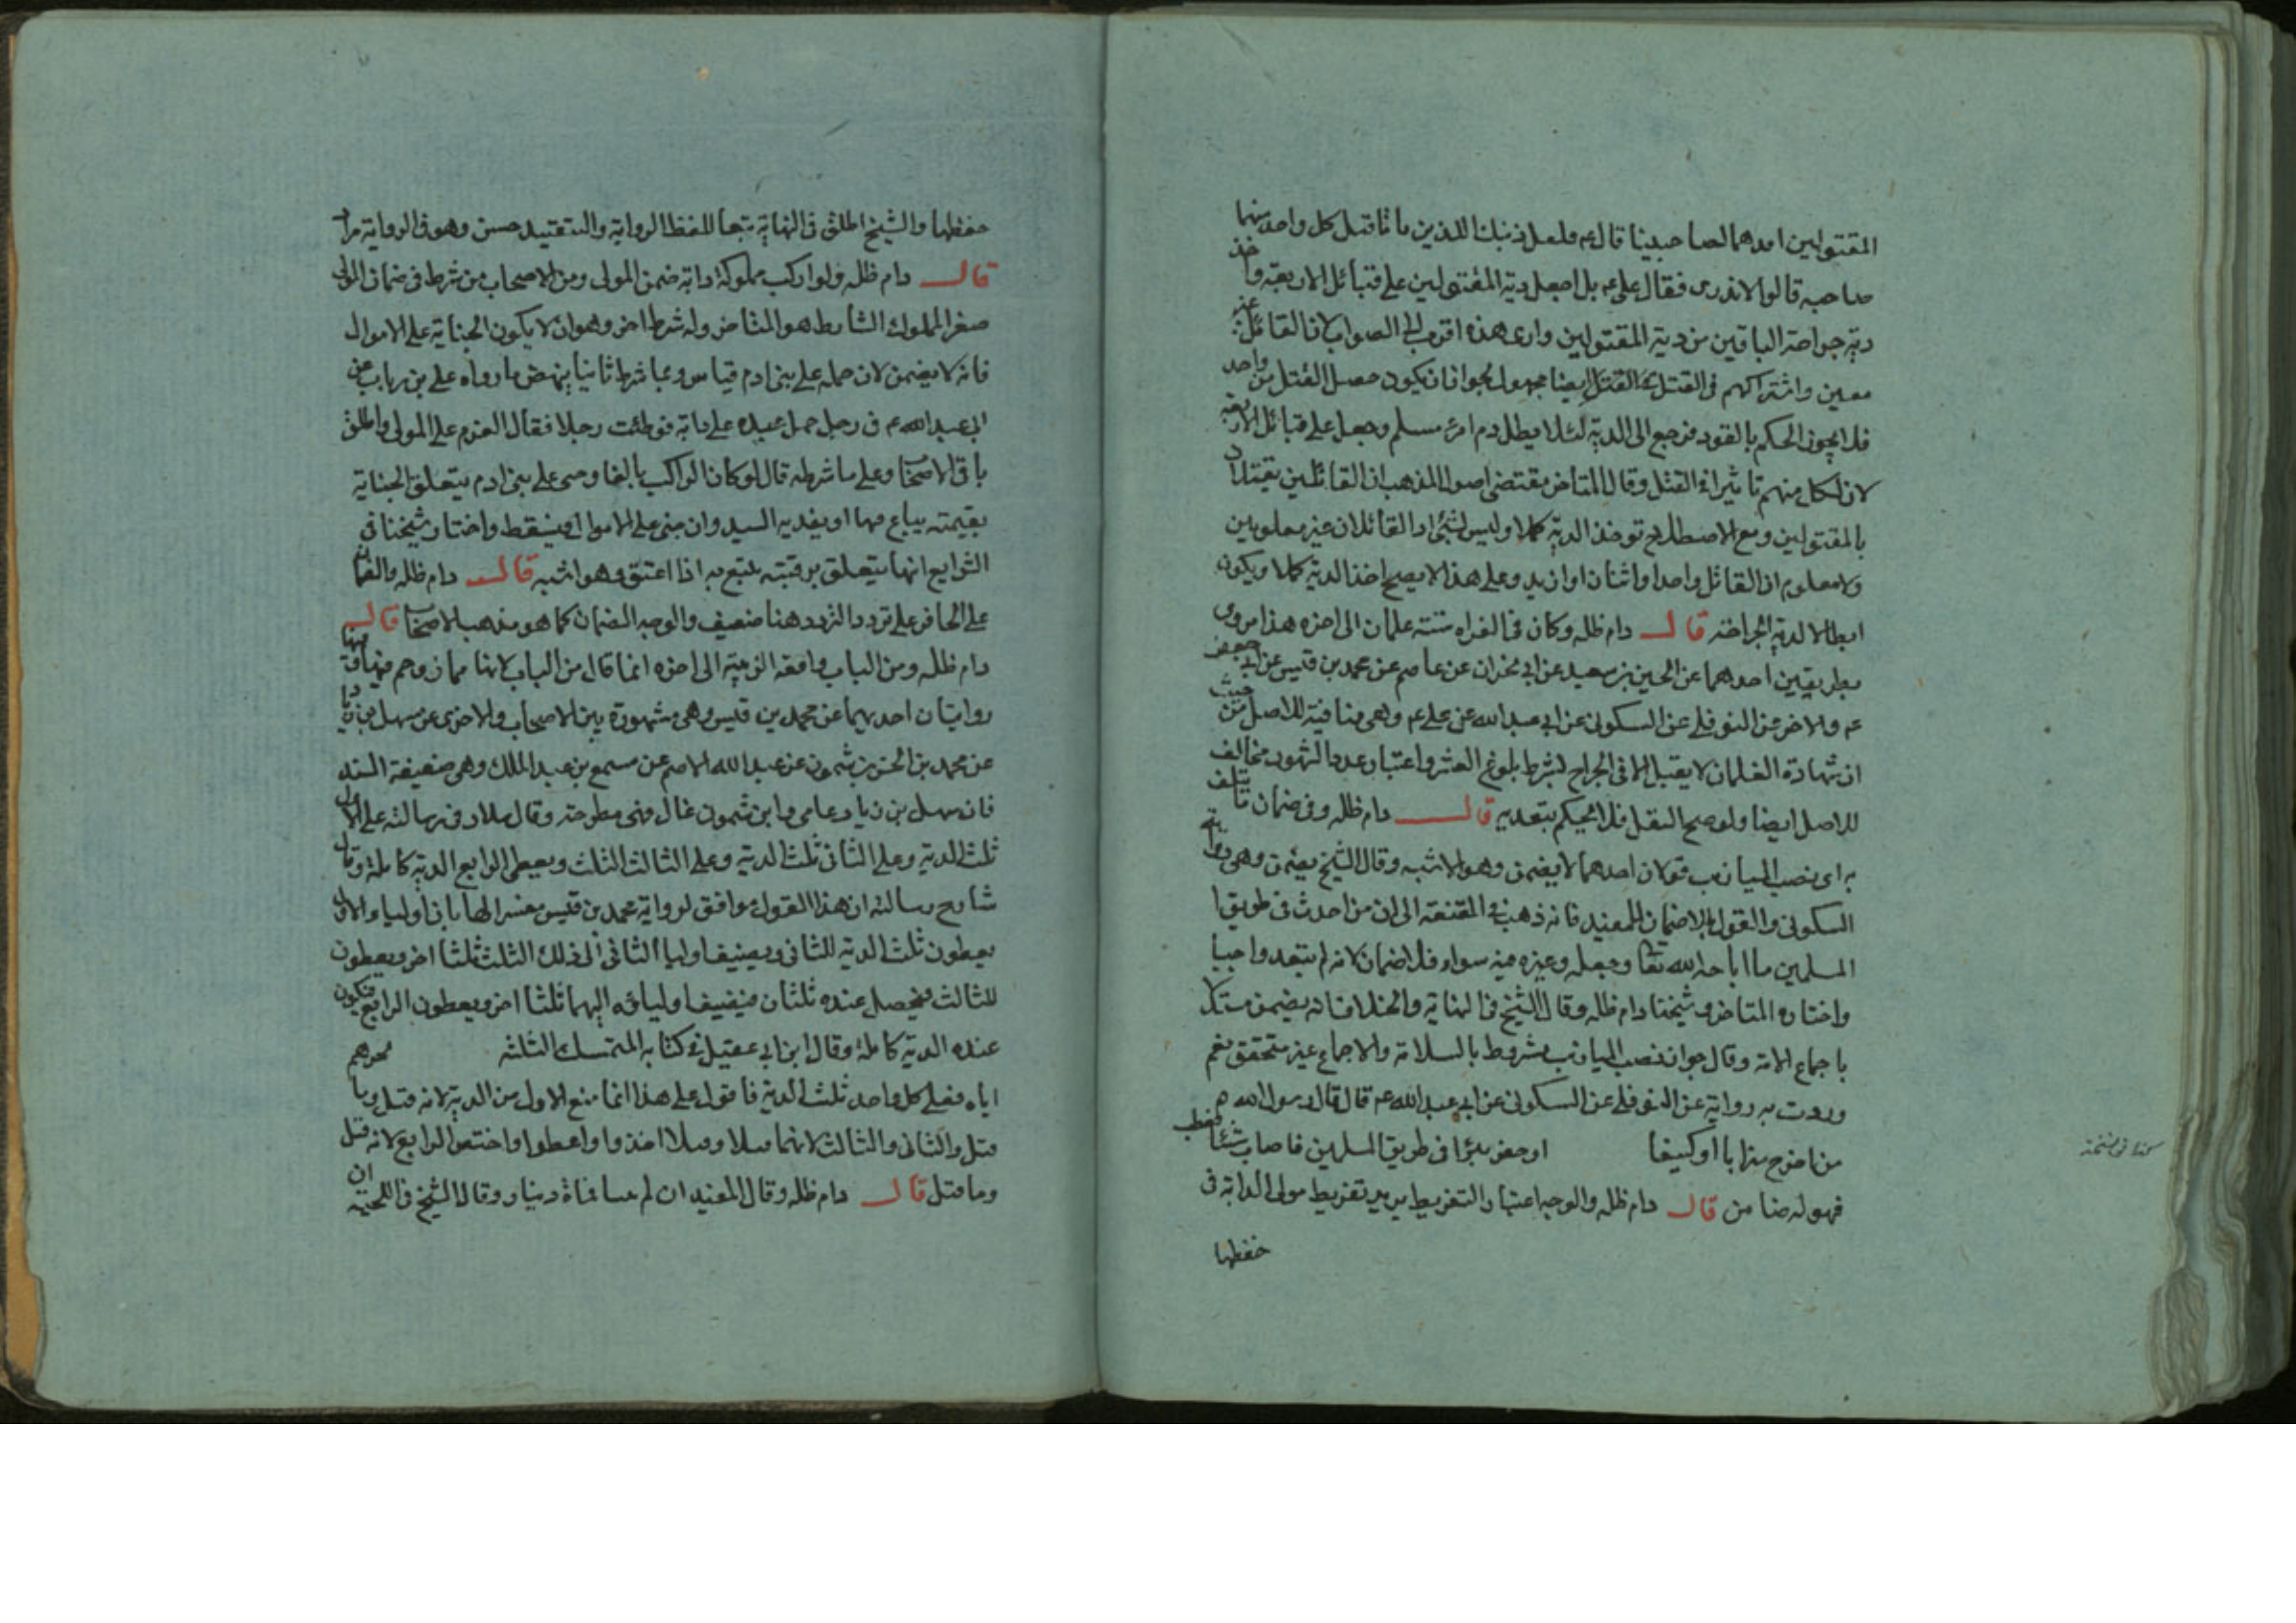 المقتولين احدهما لصاحبه بينا قال ع فلعل ذينك اللذين ماتا قتل كل واحد منهما
صاحبه قالوا لا ندرى فقال على ع بل اجعل دية المقتولين على قبائل الاربعة واخذ
دية جراحة الباقين من دية المقتولين وارى هذه اقرب الى الصواب لان القاتل غير
معين واشتراكهم فى القتل ايضا مجهول لجواز ان يكون حصل القتل من واحد
فلا يجوز الحكم بالقود فرجع الى الدية لئلا يطل دم امرء مسلم وجعل على قبائل الاربعة
لان لكل منهم تاثيرا فى القتل وقال المتاخر مقتضى اصول المذهب ان القاتلين يقتلان
بالمقتولين ومع الاصطلاح توخذ الدية كملا وليس لشئ اذ القاتلان غير معلومين
ولا معلوم ان القاتل واحد او اثنان او ازيد وعلى هذا لا يصح اخذ الدية كملا ويكون
ابطالا لدية الجراحة قال دام ظله وكان فى الفراه ستة علمان الى اخره هذا مروى
بطريقين احدهما عن الحسين بن سعيد عن ابى نجران عن عاصم عن محمد بن قيس عن ابى جعفر
ع والاخر عن النوفلى عن السكونى عن ابى عبد الله عن على ع وهى منافية للاصل من حيث
ان شهادة الغلمان لا يقبل الا فى الجراح بشرط بلوغ العشر واعتبار عدد الشهود مخالف
للاصل ايضا ولو صح النقل فلا يحكم بتعديه قال دام ظله وفى ضمان ما تلف
به اى بنصب الميازيب قولان احدهما لا يضمن وهو الاشبه وقال الشيخ يضمن وهى رواية
السكونى والقول بالاضمان للمفيد فانه ذهب فى المقنعة الى ان من احدث فى طريق ا
المسلمين ما اباحه الله تعا وجعله وغيره فيه سواء فلا ضمان لانه لم يتعد واجبا
واختاره المتاخر وشيخنا دام ظله وقال الشيخ فى النهاية والخلاف انه يضمن مستدلا
باجماع الامة وقال جواز نصب الميازيب مشروط بالسلامة والاجماع غير متحقق نعم
وردت به رواية عن النوفلى عن السكونى عن ابى عبد الله ع قال قال رسول الله ص
من اخرج ميزابا او كنيفا او حفر بئرا فى طريق المسلمين فاصاب شئا فعطب
فهو له ضامن قال دام ظله والوجه اعتبار التفريط يريد تفريط مولى الدابة فى
حفظها
كذا فى نسخة
حفظها والشيخ اطلق فى النهاية تبعا للفظ الرواية والتقييد حسن وهو فى الرواية مراد
قال دام ظله ولو اركب مملوكه دابة ضمن المولى ومن الاصحاب من شرط فى ضمان المولى
صغر المملوك الشارط هو المتاخر وله شرط اخر وهو ان لا يكون الجناية على الاموال
فانه لا يضمن لان حمله على بنى ادم قياس وبما شرط ثانيا ينهض ما رواه على بن رباب عن
ابى عبد الله ع فى رجل حمل عبده على دابة فوطئت رجلا فقال الغرم على المولى واطلق
باقى الاصحا وعلى ما شرطه قال لو كان الراكب بالغا وجى على بنى ادم يتعلق الجناية
بقيمته يباع فيها او يفديه السيد وان جنى على الاموال فيسقط واختار شيخنا فى
الشرايع انها يتعلق برقبته يتبع به اذا اعتق وهو اشبه قال دام ظله والضمان
على الحافر على تردد التردد هنا ضعيف والوجه الضمان كما هو مذهب الاصحا قال
دام ظله ومن الباب واقعة الزبية الى اخره انما قال من الباب لانها مما زوحم فيها وفيها
روايتان احديهما عن محمد بن قيس وهى مشهورة بين الاصحاب والاخرى عن سهل بن زياد
عن محمد بن الحسن بن شمون عن عبد الله الاصم عن مسمع بن عبد الملك وهى ضعيفة السند
فان سهل بن زياد عامى وابن شمون غال فهى مطرحة وقال سلار فى رسالته على الاول
ثلث الدية وعلى الثانى ثلث الدية وعلى الثالث الثلث ويعطى الرابع الدية كاملة وقال
شارح رسالته ان هذا القول موافق لرواية محمد بن قيس مفسر لها بان اولياء الاول
يعطون ثلث الدية للثانى ويضيف اوليا الثانى الى ذلك الثلث ثلثا اخر ويعطون
للثالث فيحصل عنده ثلثان فيضيف اولياؤه اليهما ثلثا اخر ويعطون الرابع فيكون
عنده الدية كاملة وقال ابن ابى عقيل فى كتابه المتمسك الثلثه لجرهم
اياه فعلى كل واحد ثلث الدية فاقول على هذا انما منع الاول من الدية لانه قتل وما
قتل والثانى والثالث لانهما قتلا وقتلا اخذوا واعطوا واختص الرابع لانه قتل
وما قتل قال دام ظله وقال المفيد ان لم ينبتا فماة دينار وقال الشيخ فى اللحية ان